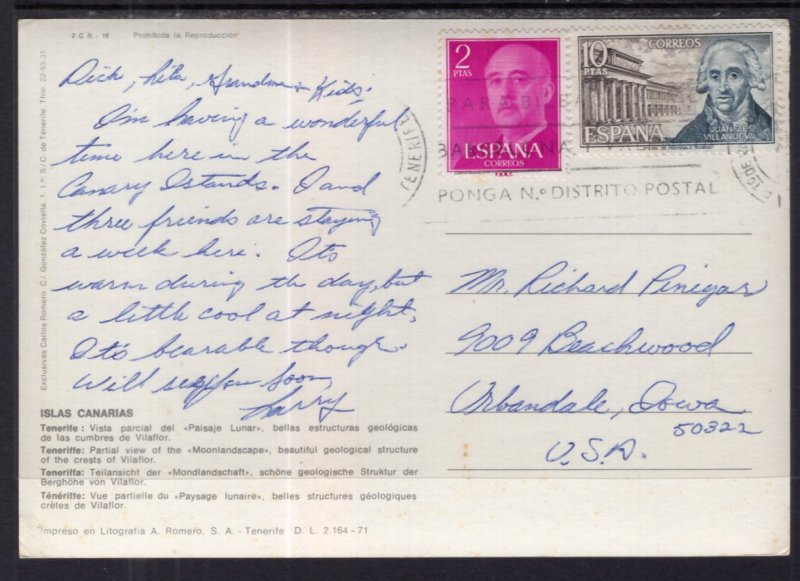 2 C R - 16 Prohibida la Reproducción
Exclusivas Carlos Romero. C/. González Coviella, 1 1.º S/C. de Tenerife. Tfno. 22-53-31
Dick, Lila, Grandma + Kids,
I'm having a wonderful
time here in the
Canary Islands. I and
three friends are staying
a week here. It's
warm during the day, but
a little cool at night.
It's bearable though.
Will see you soon,
Larry
ISLAS CANARIAS
Tenerife: Vista parcial del «Paisaje Lunar», bellas estructuras geológicas
de las cumbres de Vilaflor.
Teneriffe: Partial view of the «Moonlandscape», beautiful geological structure
of the crests of Vilaflor.
Teneriffa: Teilansicht der «Mondlandschaft», schöne geologische Struktur der
Berghöhe von Vilaflor.
Ténériffe: Vue partielle du «Paysage lunaire», belles structures géologiques
crêtes de Vilaflor.
Impreso en Litografía A. Romero, S. A. - Tenerife D. L. 2.164 - 71
2
PTAS
ESPAÑA
CORREOS
10
PTAS
CORREOS
ESPAÑA
JUAN DE
VILLANUEVA
TENERIFE
PARA
PONGA N.º DISTRITO POSTAL
Mr. Richard Pinegar
9009 Beachwood
Urbandale, Iowa
50322
U.S.A.